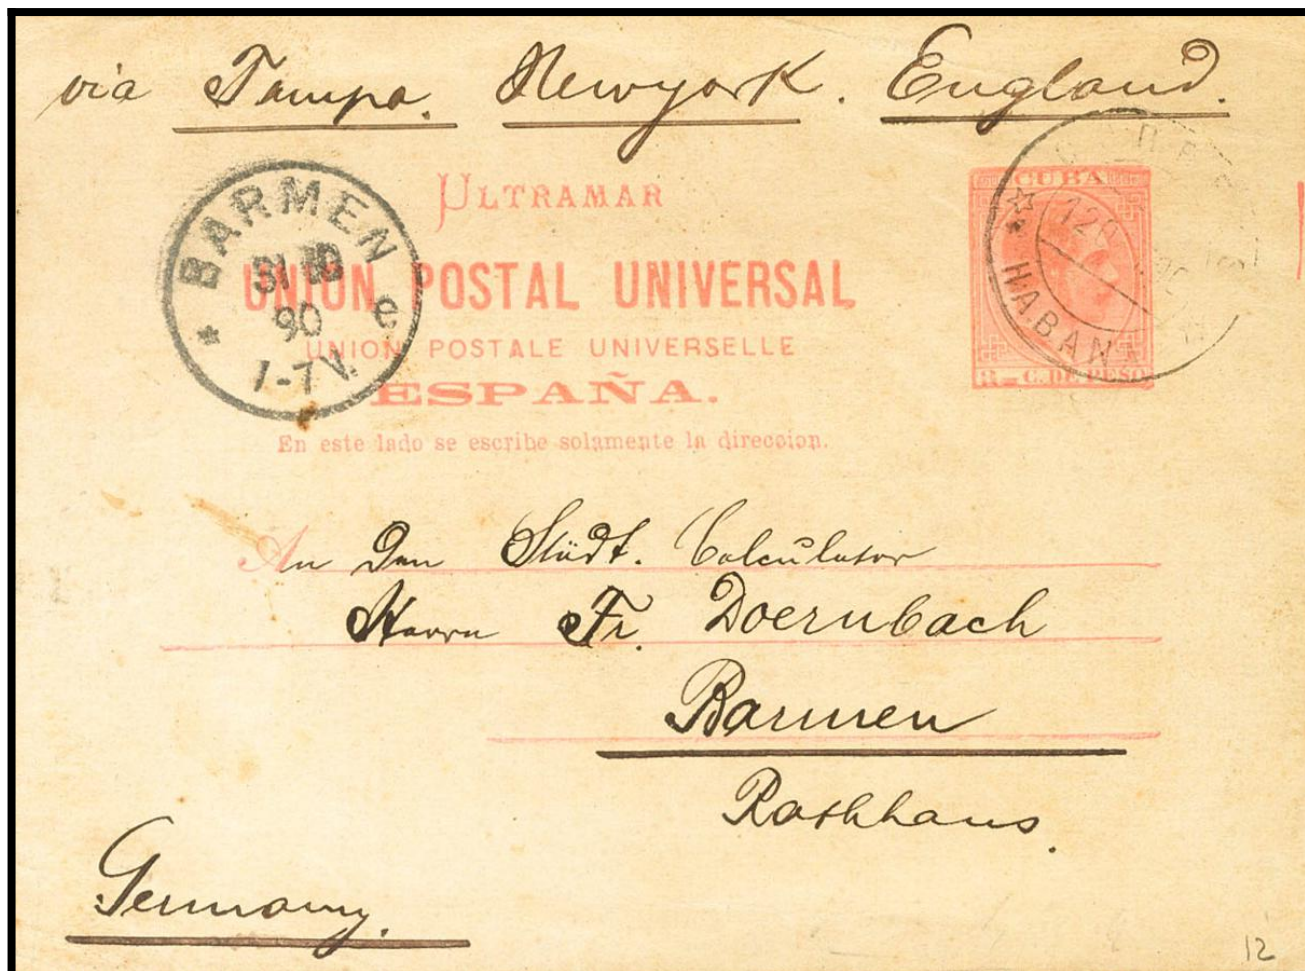 via Tampa. Newyork. England.
ULTRAMAR
UNION POSTAL UNIVERSAL
UNION POSTALE UNIVERSELLE
ESPAÑA.
En este lado se escribe solamente la direccion.
BARMEN
90
e
1-7V.
CUBA
C. DE PESO
HABANA
An Den Städt. Calculator
Herrn Fr. Doernbach
Barmen
Rathhaus.
Germany.
12